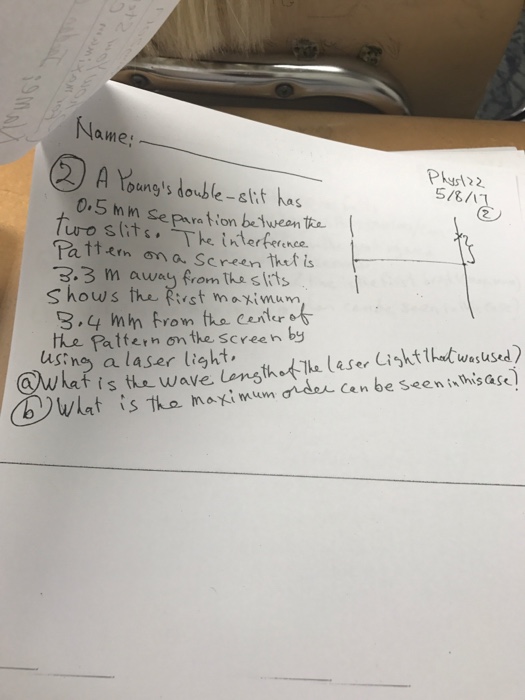 Name:
Phys122
5/8/17
2
2 A Young's double-slit has
0.5 mm separation between the
two slits. The interference
Pattern on a screen that is
3.3 m away from the slits
shows the first maximum,
3.4 mm from the center of
the Pattern on the screen by
using a laser light.
a) What is the wave length of the laser light that was used?
b) What is the maximum order can be seen in this case?